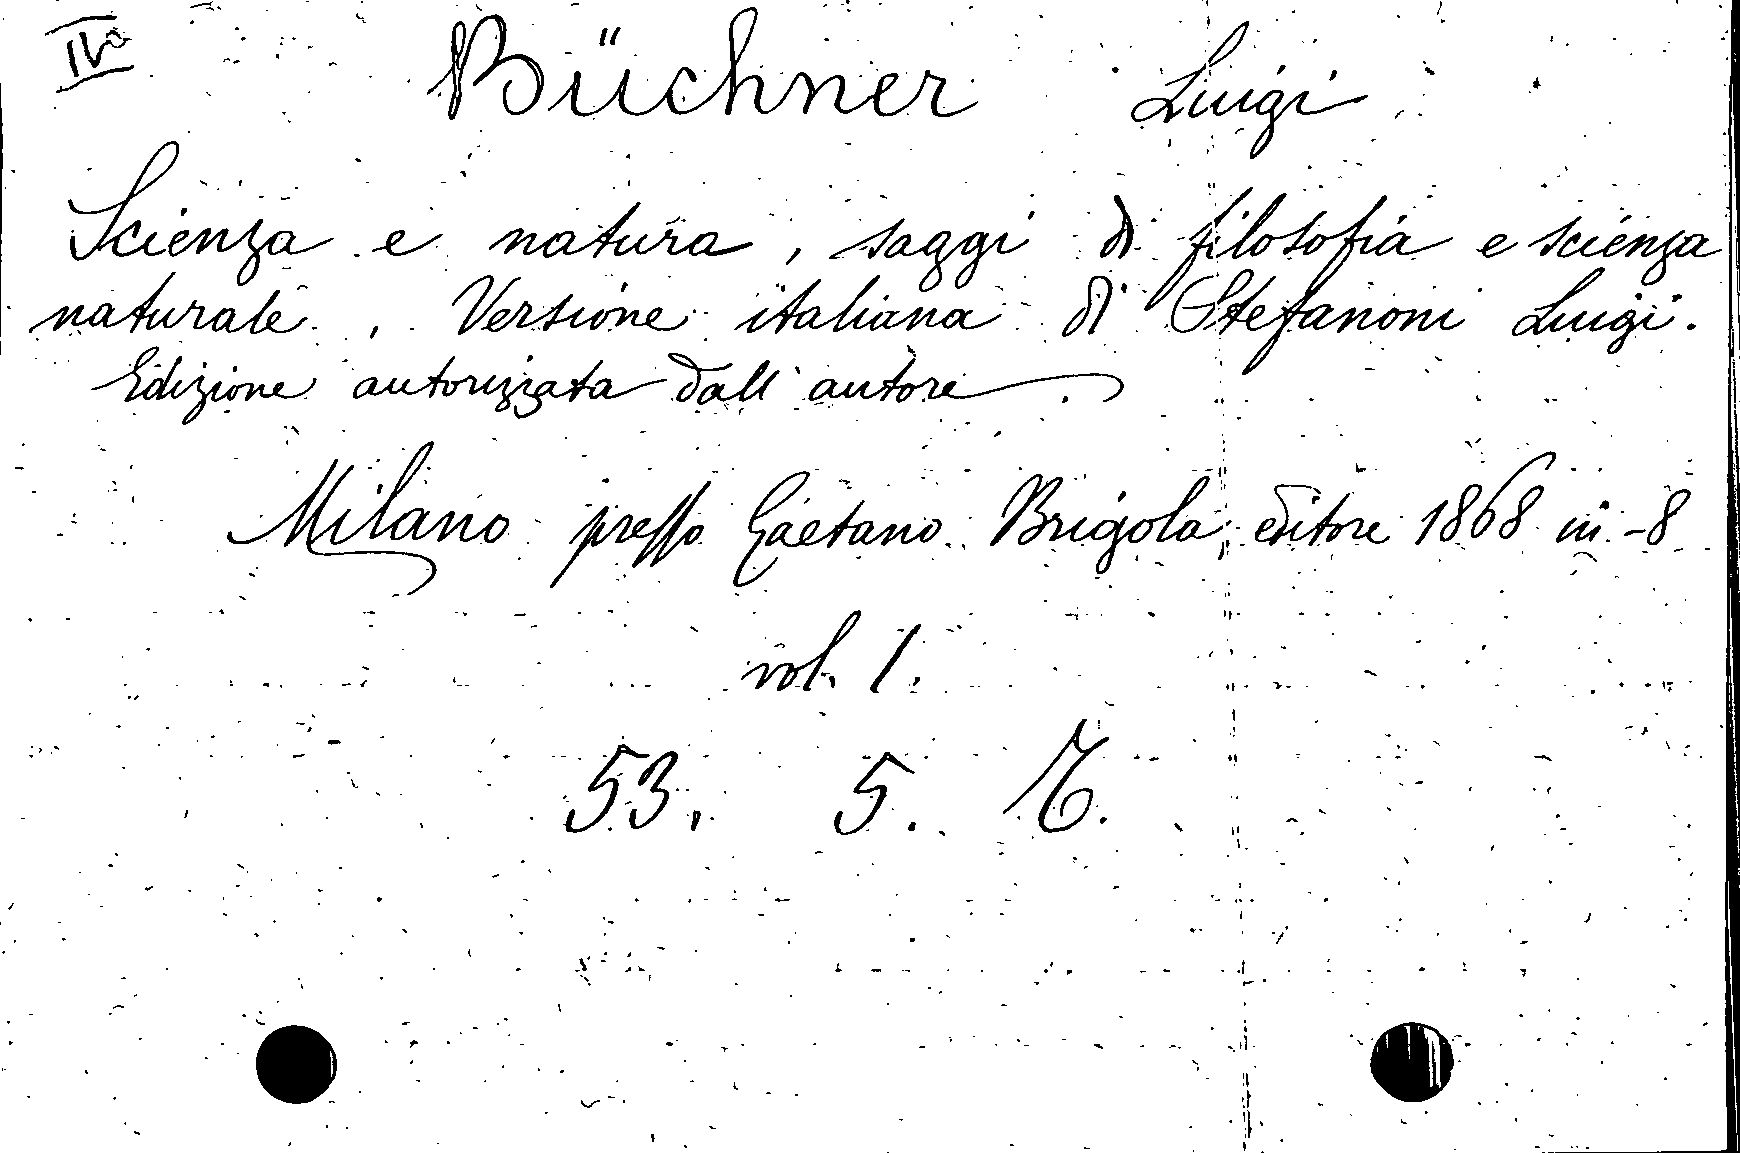 IVª
Büchner Luigi
Scienza e natura, saggi di filosofia e scienza
naturale. Versione italiana di Stefanoni Luigi.
Edizione autorizzata dall'autore.
Milano presso Gaetano Brigola, editore 1868 in-8
vol. 1.
53. 5.